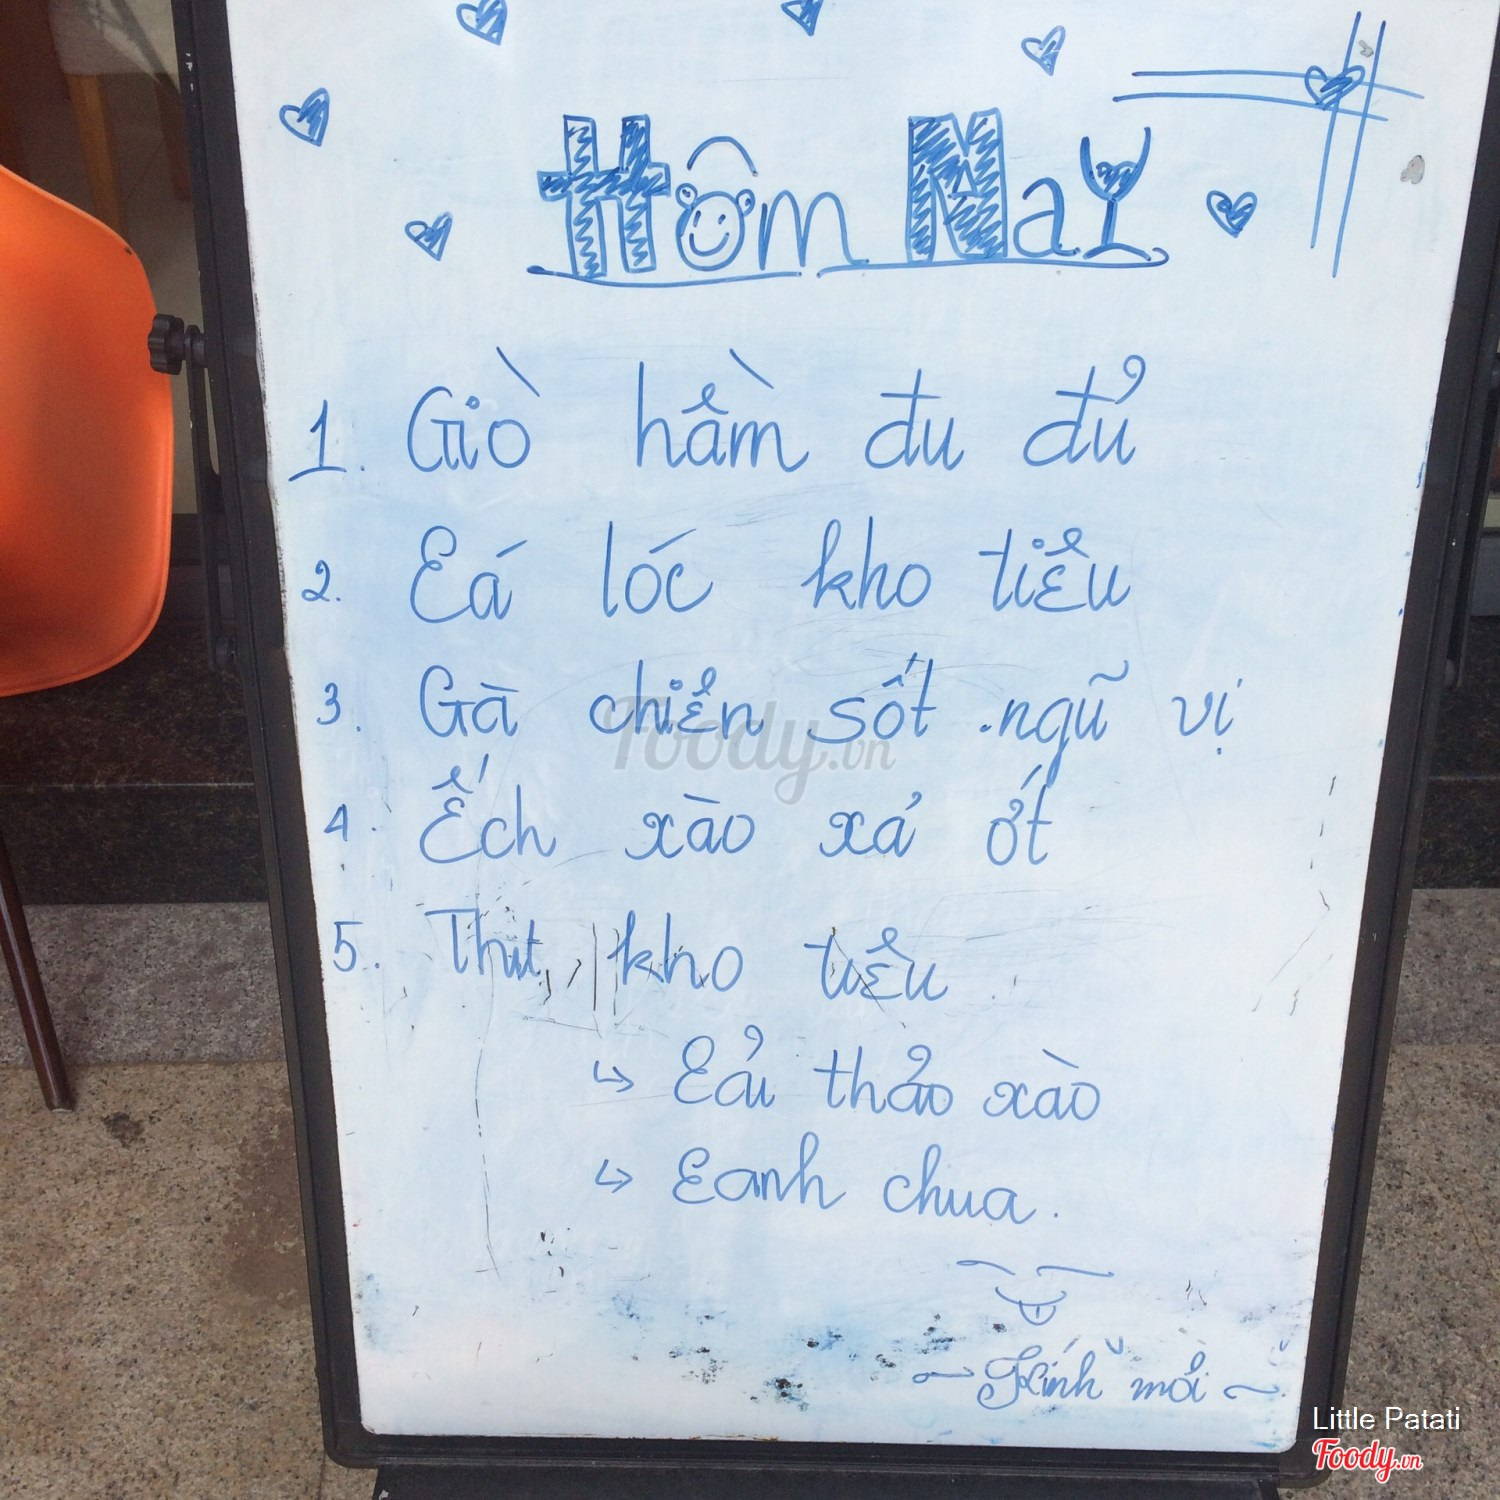 Hôm Nay
1. Giò hầm đu đủ
2. Cá lóc kho tiêu
3. Gà chiên sốt ngũ vị
4. Ếch xào xả ớt
5. Thịt kho tiêu
↳ Cải thảo xào
↳ Canh chua.
~ Kính mời ~
Foody.vn
Little Patati
Foody.vn